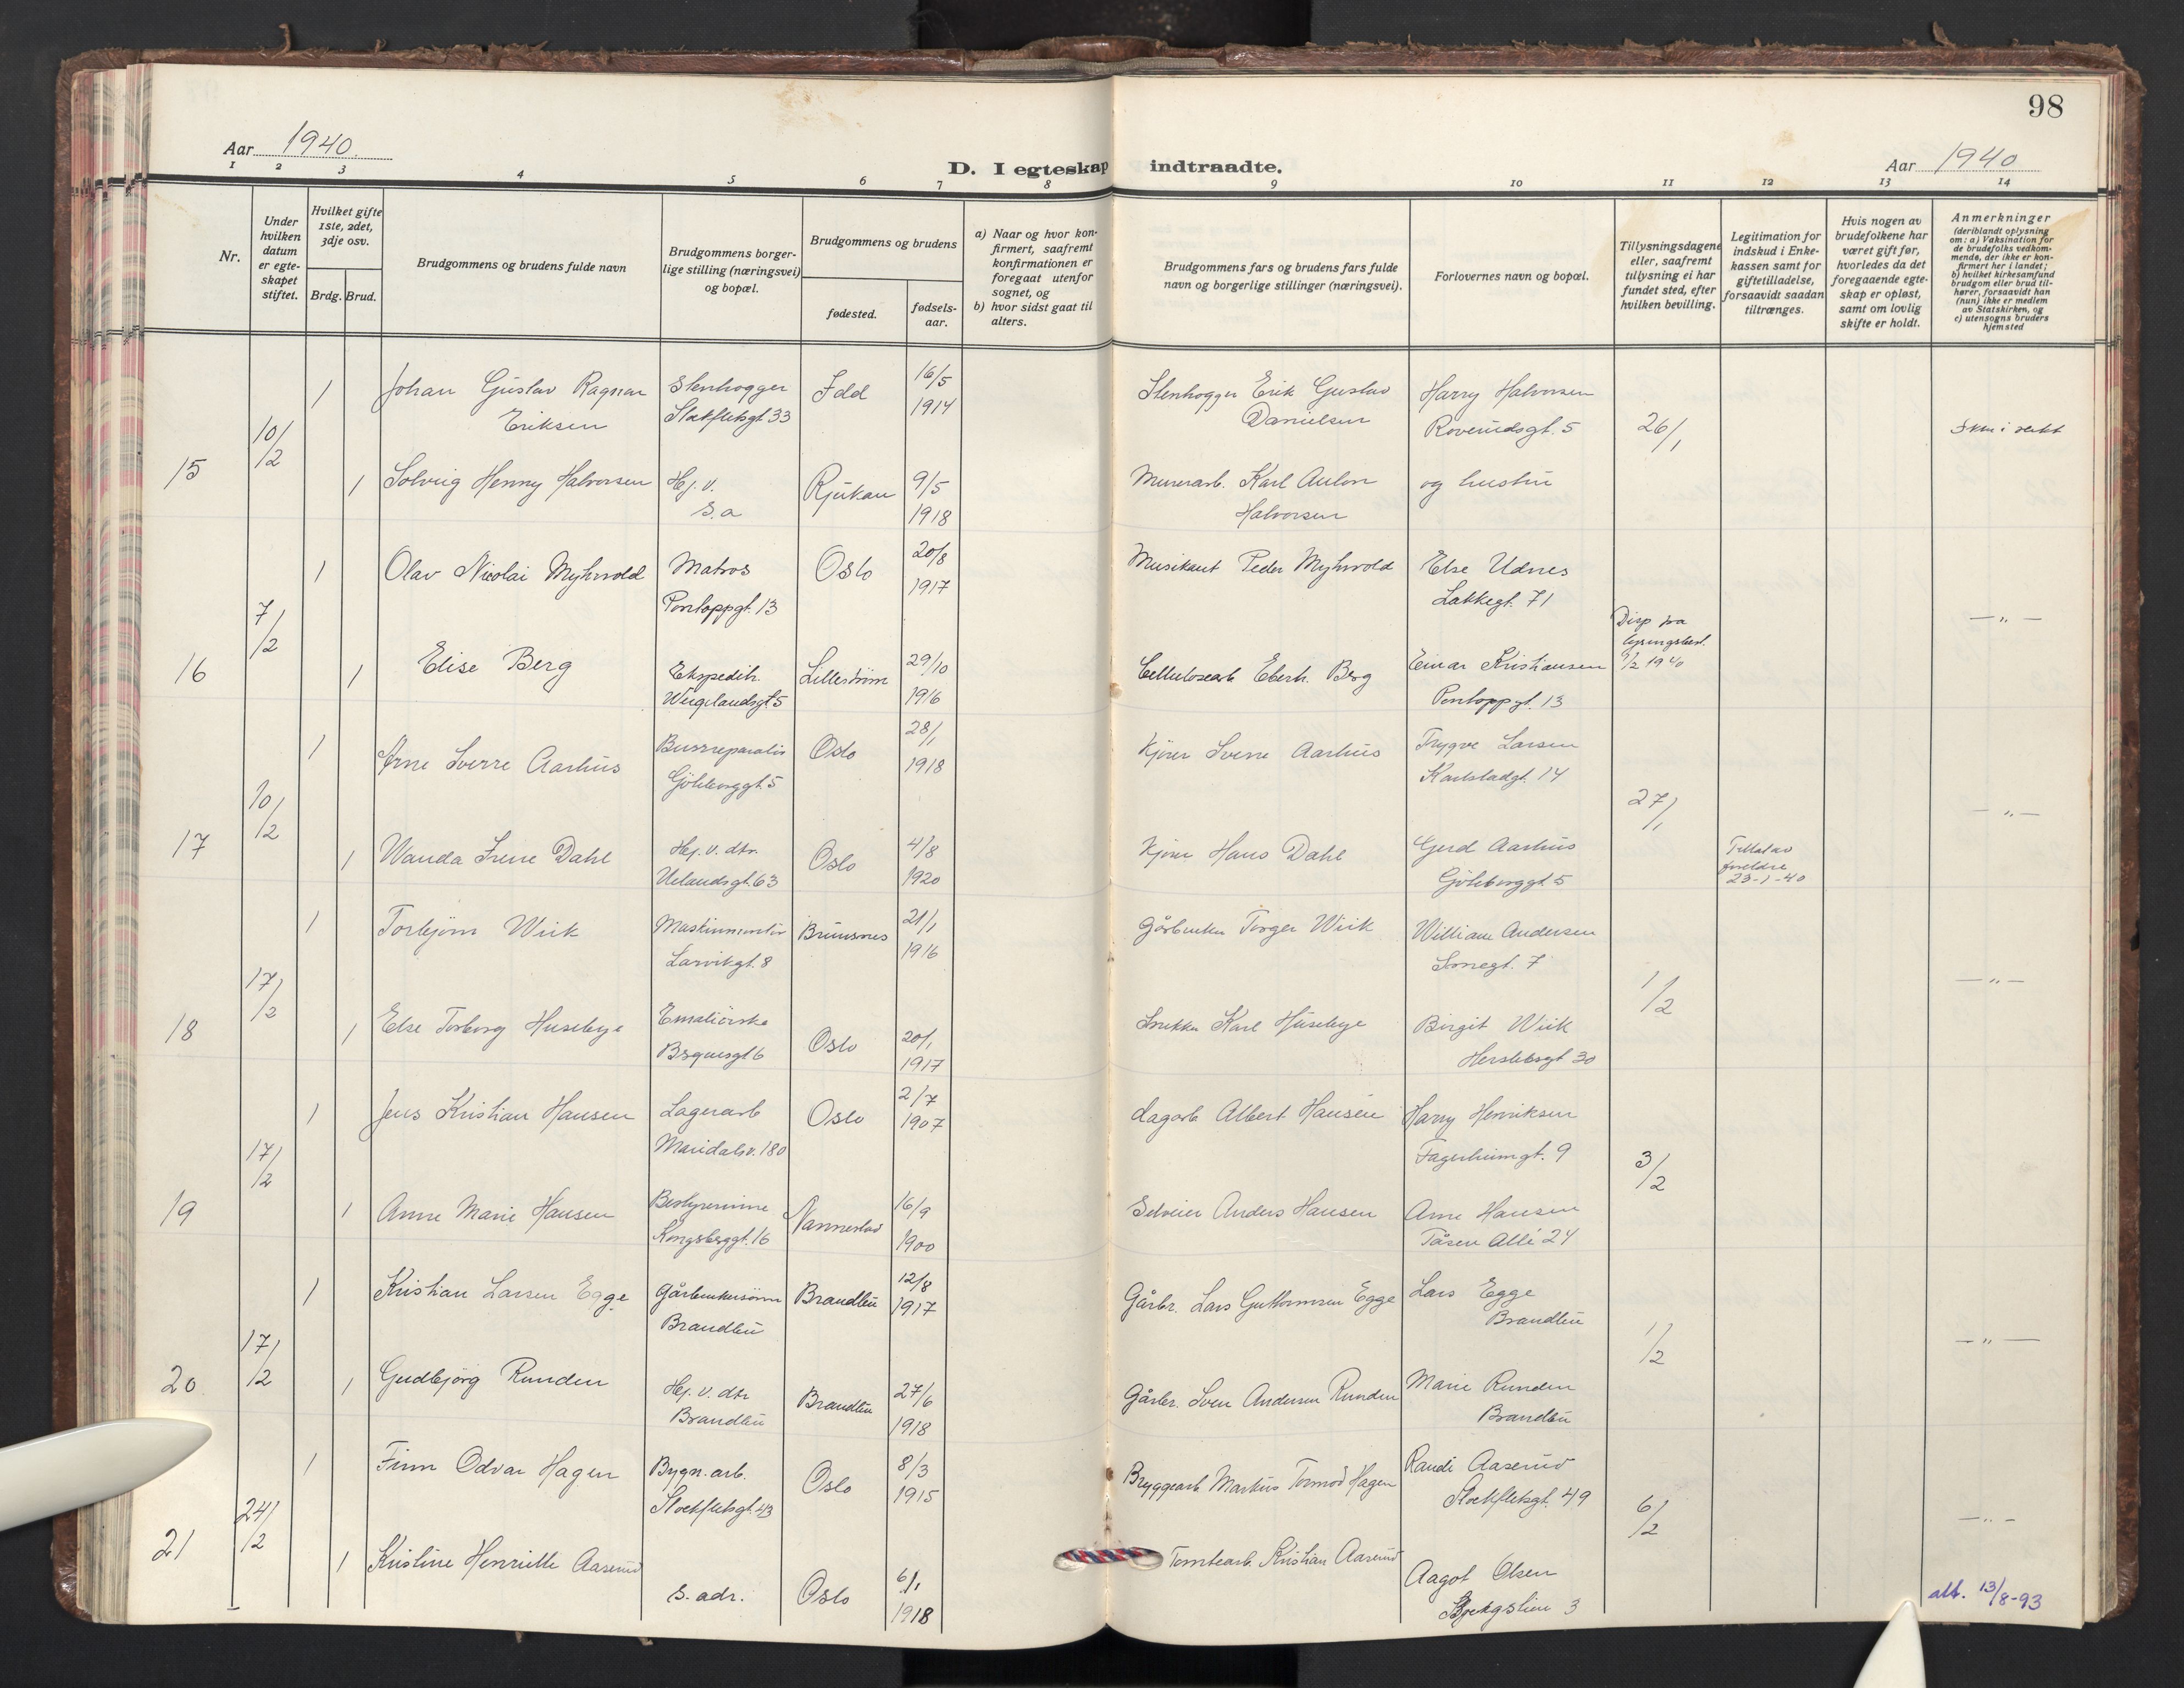 98
Aar 1940.
D. I egteskap indtraadte.
Aar 1940
1 2 3 4 5 6 7 8 9 10 11 12 13 14
Nr.
Under hvilken datum er egte-skapet stiftet.
Hvilket gifte 1ste, 2det, 3dje osv.
Brdg. Brud.
Brudgommens og brudens fulde navn
Brudgommens borger-lige stilling (næringsvei) og bopæl.
Brudgommens og brudens
fødested.
fødsels-aar.
a) Naar og hvor kon-firmert, saafremt konfirmationen er foregaat utenfor sognet, og
b) hvor sidst gaat til alters.
Brudgommens fars og brudens fars fulde navn og borgerlige stillinger (næringsvei).
Forlovernes navn og bopæl.
Tillysningsdagene eller, saafremt tillysning ei har fundet sted, efter hvilken bevilling.
Legitimation for indskud i Enke-kassen samt for giftetilladelse, forsaavidt saadan tiltrænges.
Hvis nogen av brudefolkene har været gift før, hvorledes da det foregaaende egte-skap er opløst, samt om lovlig skifte er holdt.
Anmerkninger
(deriblandt oplysning om: a) Vaksination for de brudefolks vedkom-mende, der ikke er kon-firmert her i landet; b) hvilket kirkesamfund brudgom eller brud til-hører, forsaavidt han (hun) ikke er medlem av Statskirken, og c) utensogns bruders hjemsted
15 10/2
1 Johan Gustav Ragnar Stenhogger Idd 16/5 Stenhogger Erik Gustav Harry Halvorsen
Eriksen 33 1914 Danielsen 5 26/1
1 Solveig Henny Halvorsen Hj. v. Rjukan 9/5 Murerarb. Karl Anton og hustru
S. a 1918 Halvorsen
16 7/2
1 Olav Nicolai Myhrvold Matros Oslo 20/8 Musikant Peder Myhrvold Else Udnes
Pontoppgt. 13 1917 Lakkegt. 71
Disp fra
1940
— „ —
1 Elise Berg Ekspeditr. Lillestrøm 29/10 Cellulosearb Eberh. Berg Einar Kristiansen
Weigelandsgt 5 1916 Pontoppgt. 13
17 10/2
1 Arne Sverre Aarhus Bussreparatør Oslo 28/1 Kjører Sverre Aarhus Trygve Larsen
Göteborggt. 5 1918 Karlstadgt. 14
27/1 — „ —
1 Wanda Irene Dahl Hj. v. dtr. Oslo 4/8 Kjører Hans Dahl Gerd Aarhus
Uelandsgt. 63 1920 Göteborggt. 5
Tillat av
foreldre
23-1-40
18 17/2
1 Torbjørn Wiik Maskinmontør 21/1 Gårbruker Torger Wiik William Andersen
Larvikgt. 8 1916 7
1/2 — „ —
1 Else Torborg Huseby Emaliørske Oslo 20/1 Snekker Karl Huseby Birgit Wiik
6 1917 Herslebsgt 30
19 17/2
1 Jens Kristian Hansen Lagerarb Oslo 2/7 Lagarb Albert Hansen Harry Henriksen
Maridalsv. 180 1907 Fagerheimgt. 9
3/2
1 Anne Marie Hansen Bestyrerinne Nannestad 16/9 Selveier Anders Hansen Arne Hansen
Kongsberggt. 16 1900 Tåsen Allé 24
20 17/2
1 Kristian Larsen Egge Gårbrukersønn Brandbu 12/8 Gårbr. Lars Guttormsen Egge Lars Egge
Brandbu 1917 Brandbu
1/2 — „ —
1 Gudbjörg Runden Hj. v. dtr Brandbu 27/6 Gårbr. Sven Andersen Runden Marie Runden
Brandbu 1918 Brandbu
21 24/2
1 Finn Odvar Hagen Bygn. arb. Oslo 8/3 Bryggearb Markus Tormod Hagen Randi Aaserud
Stockfletsgt. 43 1915 Stockfletsgt. 49
6/2 — „ —
1 Kristine Henriette Aaserud Oslo 6/1 Tomtearb. Kristian Aaserud Aagot Olsen
S. adr. 1918 3
att. 13/8-93